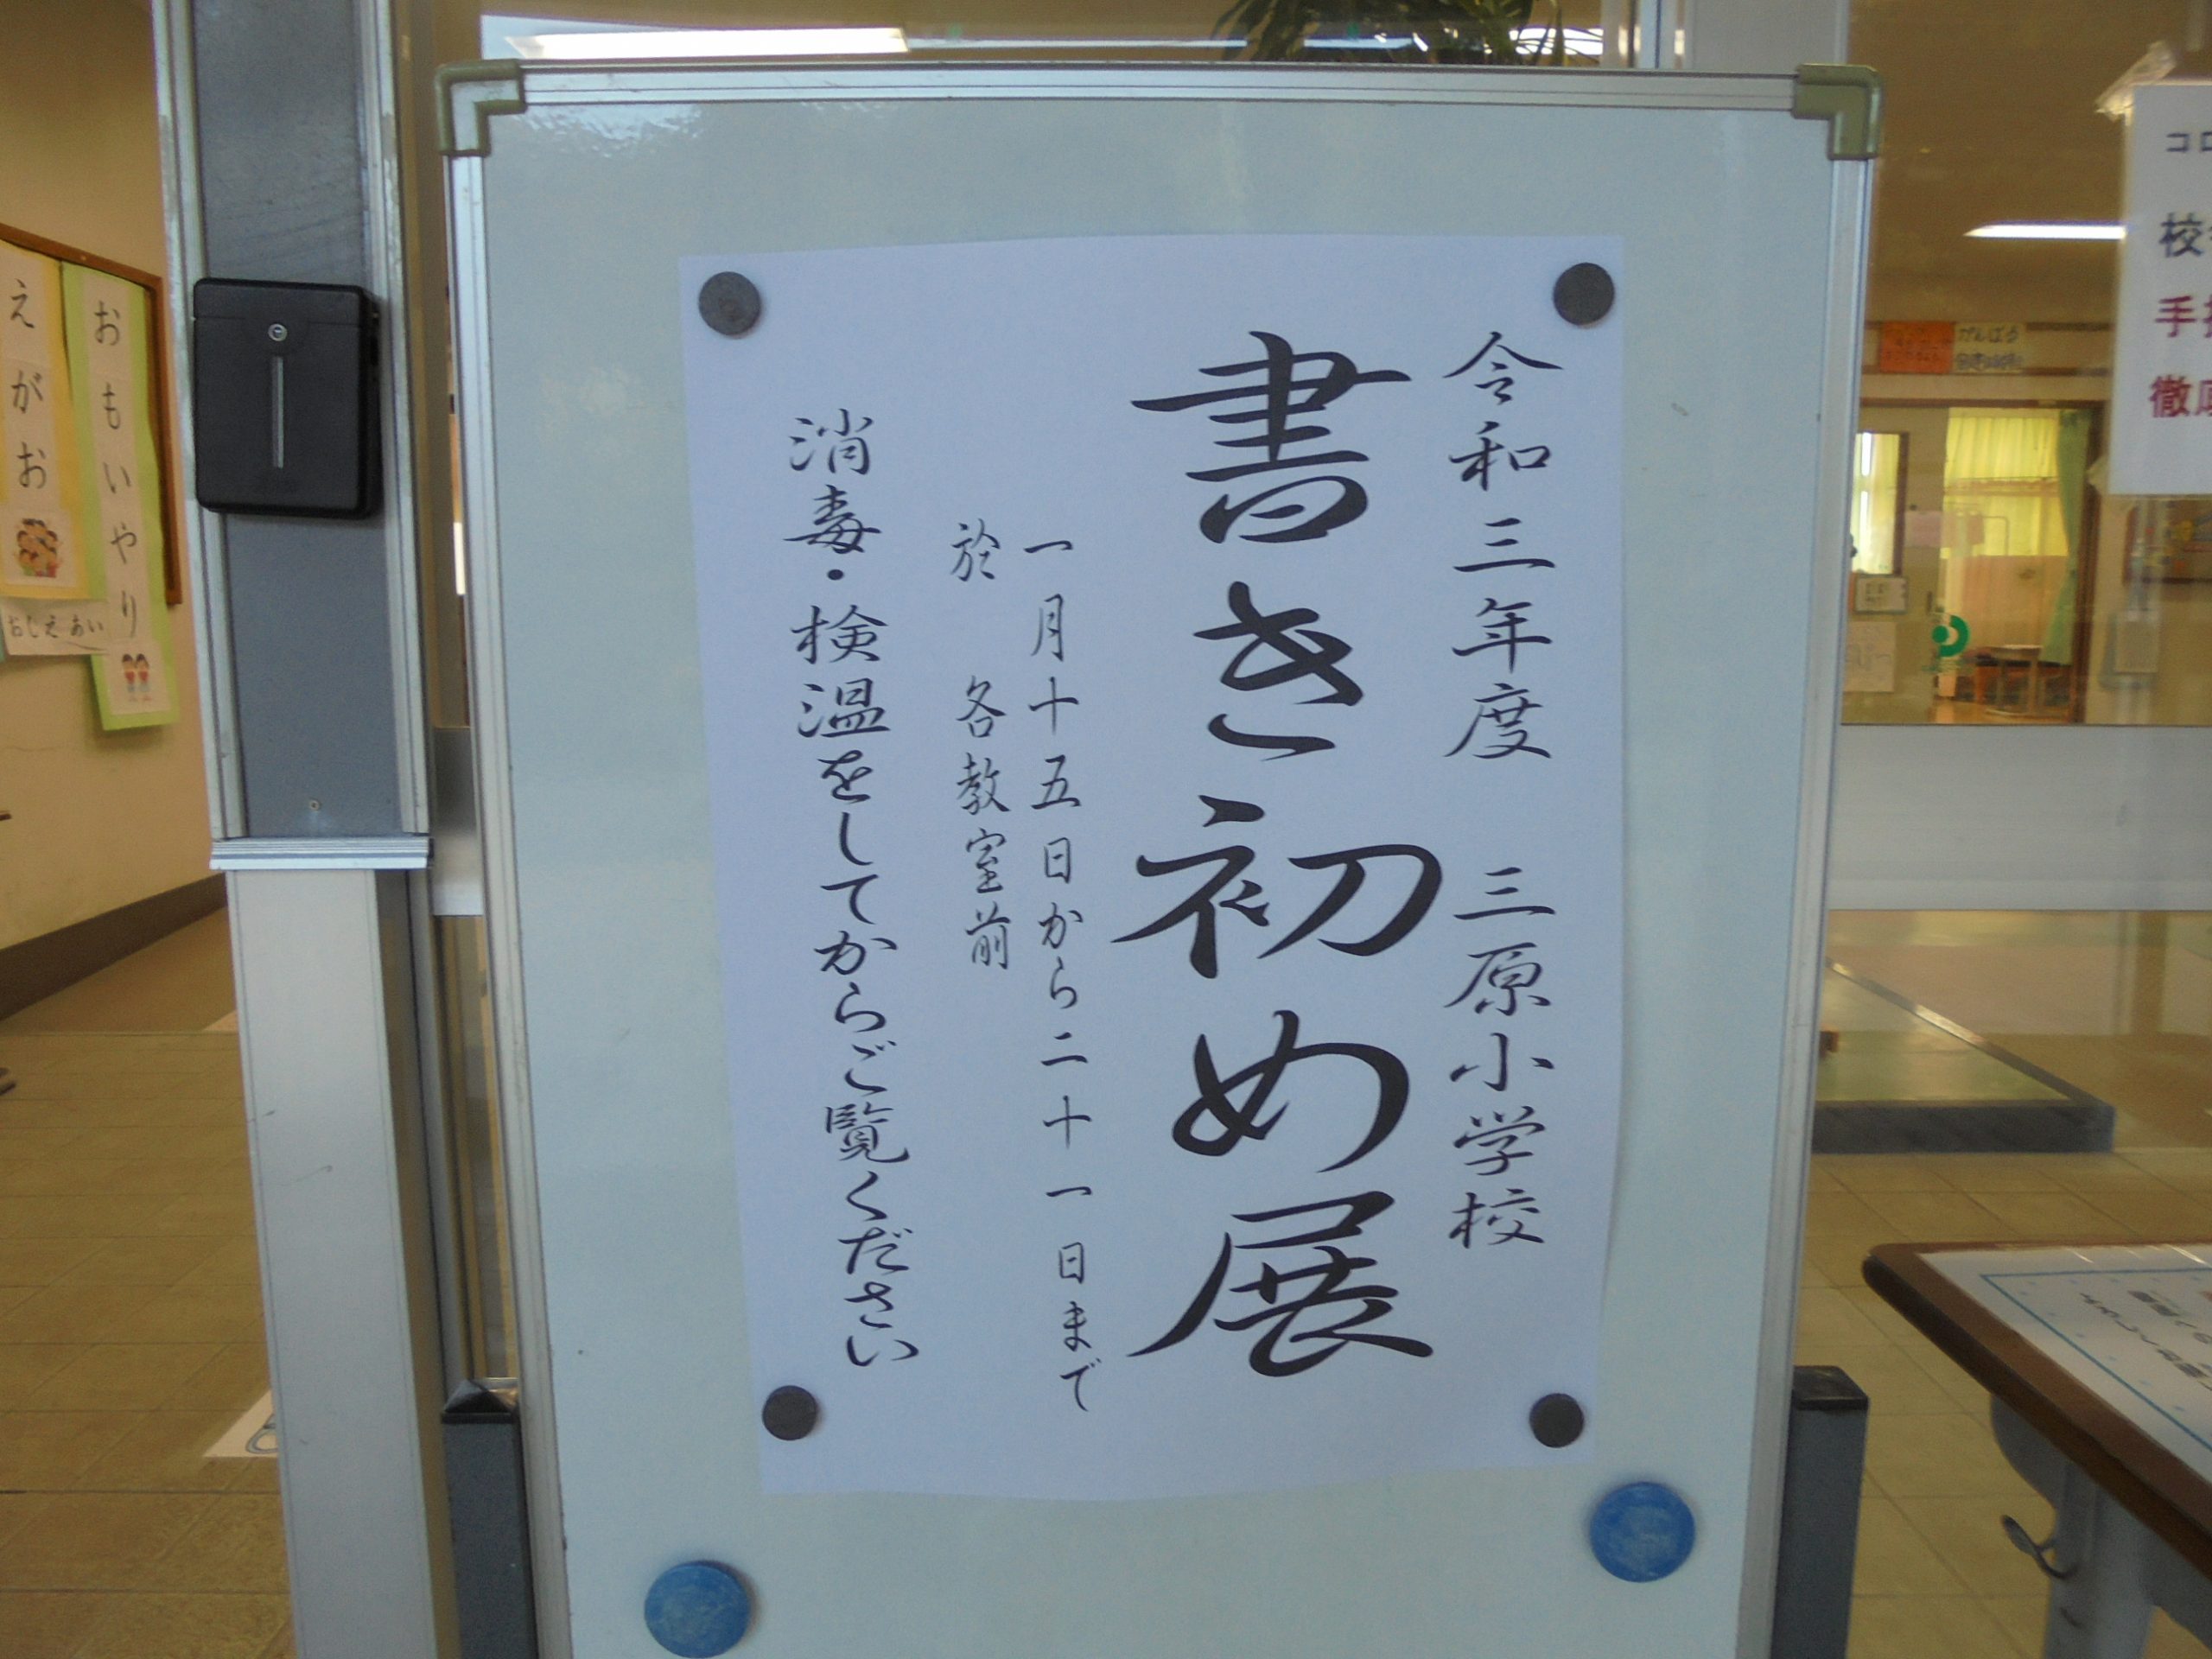 令和三年度 三原小学校
書き初め展
一月十五日から二十一日まで
於 各教室前
消毒・検温をしてからご覧ください
おもいやり
えがお
おしえあい
コロ
校
手
徹底
がんばろう